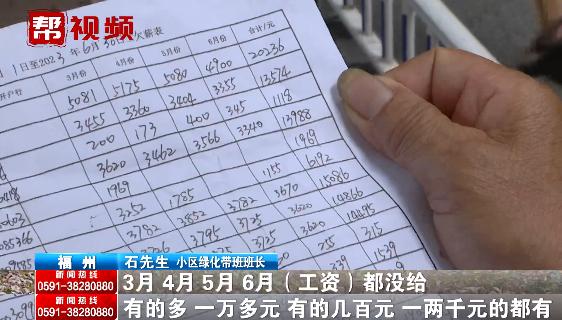 帮视频
日至2023年6月30日欠薪表
开户行 3月份 4月份 5月份 6月份 合计/元
5081 5175 5080 4900 20236
3455 3360 3404 3355 13574
200 173 400 345 1118
3620 3462 3566 3340 13988
1969 1969
3252 1785 155 6192
3782 3852 3782 3670 15086
3795 3725 3620 14866
福州 石先生 小区绿化带班班长
新闻热线 0591-38280880
3月 4月 5月 6月（工资）都没给
新闻热线 0591-38280880
有的多 一万多元 有的几百元 一两千元的都有